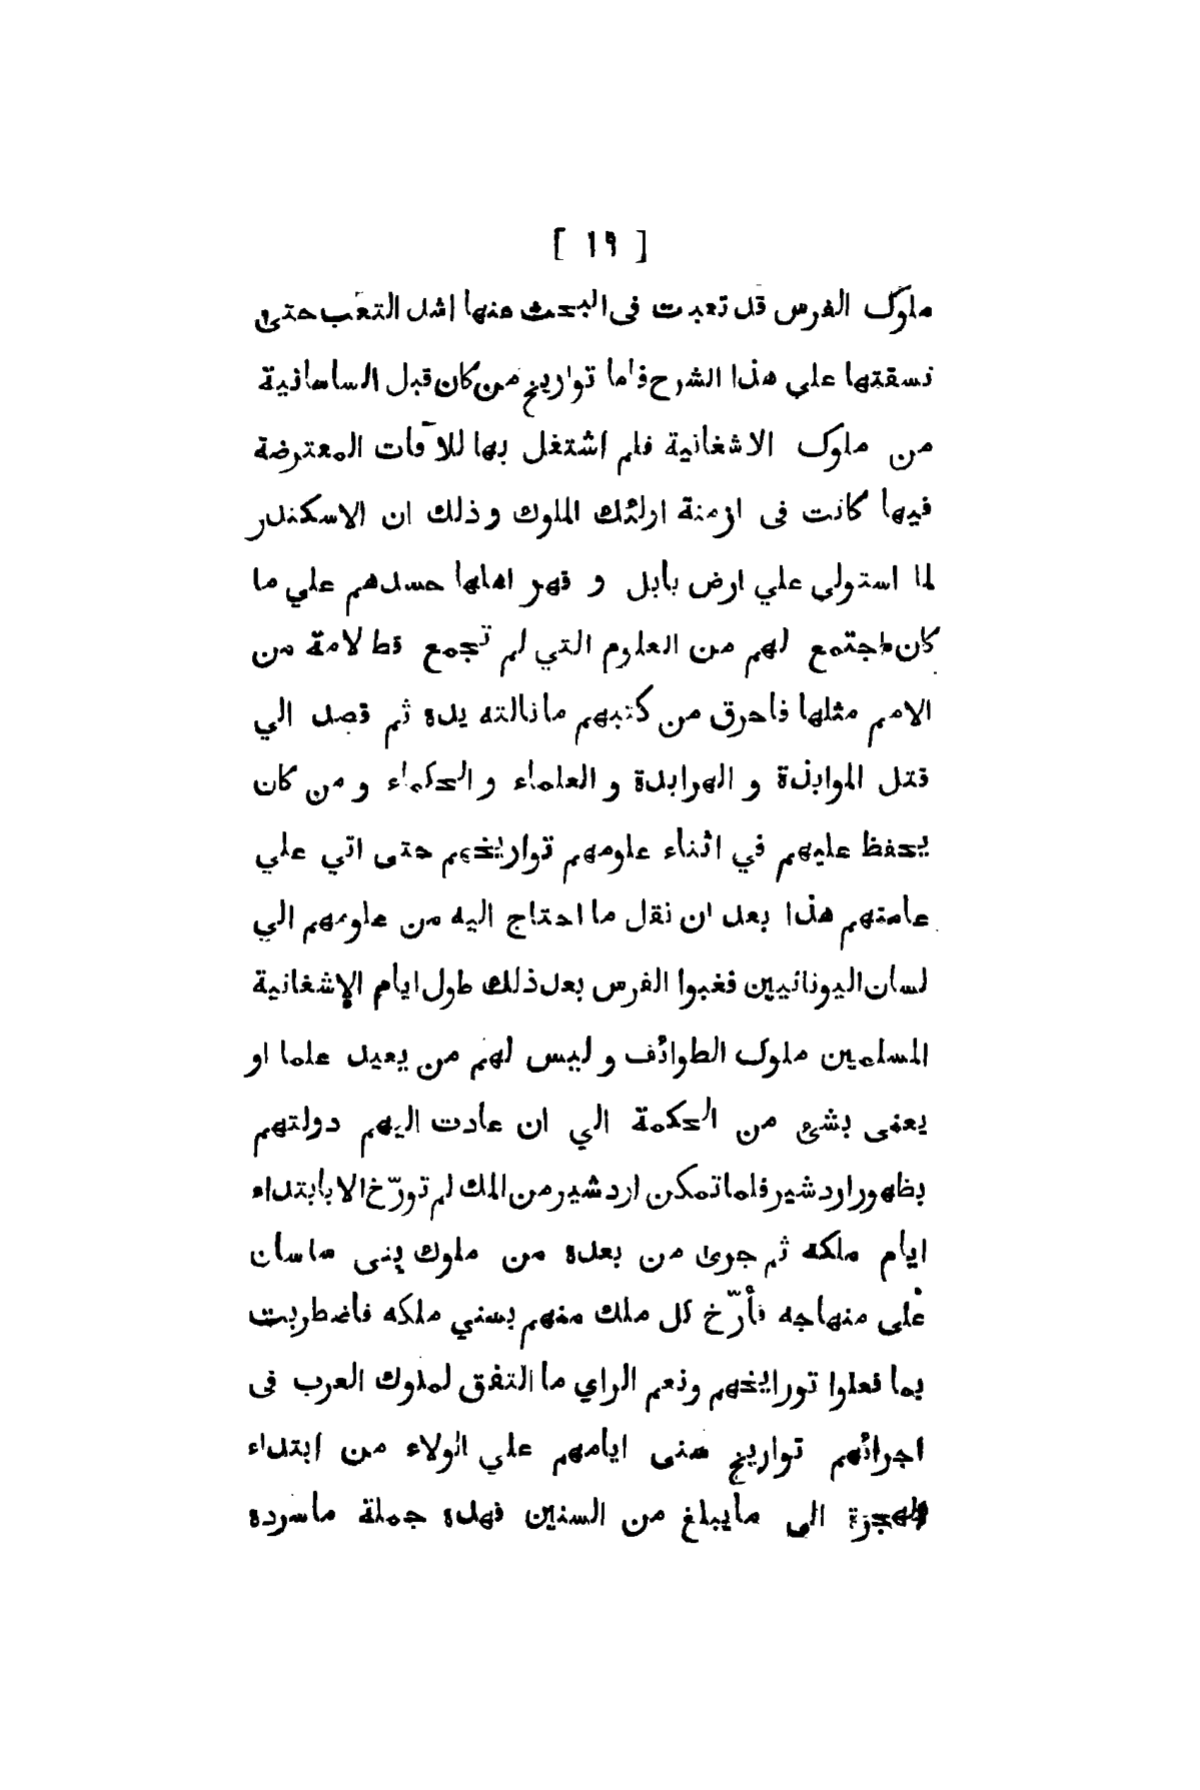 [ ١٩ ]
ملوك الفرس قد تعبت فى البحث منها اشد التعب حتى
نسقتها علي هذا الشرح فاما تواريخ من كان قبل الساسانية
من ملوك الاشغانية فلم اشتغل بها للآفات المعترضة
فيها كانت فى ازمنة ارلئك الملوك وذلك ان الاسكندر
لما استولي علي ارض بابل و قهر اهلها حسدهم علي ما
كان اجتمع لهم من العلوم التي لم تجمع قط لامة من
الامم مثلها فاحرق من كتبهم ما نالته يده ثم قصد الي
قتل الموابذة و الهرابدة و العلماء و الحكماء و من كان
يحفظ عليهم في اثناء علومهم تواريخهم حتى اتي علي
عامتهم هذا بعد ان نقل ما احتاج اليه من علومهم الي
لسان اليونانيين فغبوا الفرس بعد ذلك طول ايام الاشغانية
المسلمين ملوك الطوائف و ليس لهم من يعيد علما او
يعنى بشئ من الحكمة الي ان عادت اليهم دولتهم
بظهور اردشير فلما تمكن اردشير من الملك لم تورّخ الا بابتداء
ايام ملكه ثم جرى من بعده من ملوك بنى ماسان
على منهاجه فأرّخ كل ملك منهم بسني ملكه فاضطربت
بما فعلوا توراليخهم ونعم الراي ما التفق لملوك العرب فى
اجرائهم تواريخ سنى ايامهم علي الولاء من ابتداء
الهجرة الى مايبلغ من السنين فهذه جملة ماسرده